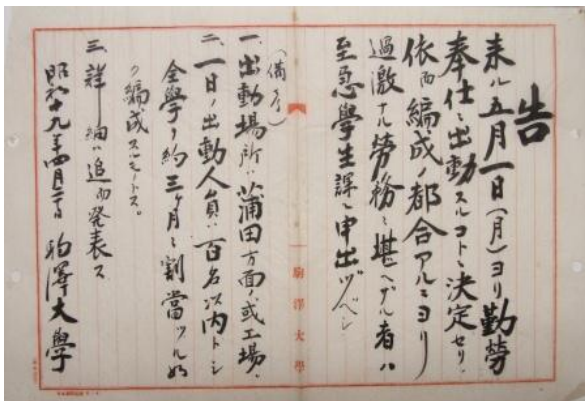 告
来ル五月一日(月)ヨリ勤労
奉仕ニ出動スルコトニ決定セリ。
依而編成ノ都合アルニヨリ
過激ナル労務ニ堪ヘザル者ハ
至急學生課ニ申出ヅベシ
(備考)
一、出動場所ハ蒲田方面ノ或工場、
二、一日ノ出動人員ハ百名以内トシ
全學ヲ約三ヶ月ニ割當ツル如
ク編成スルモノトス。
三、詳細ハ追而発表ス
昭和十九年四月二十 日 駒澤大學
駒澤大學